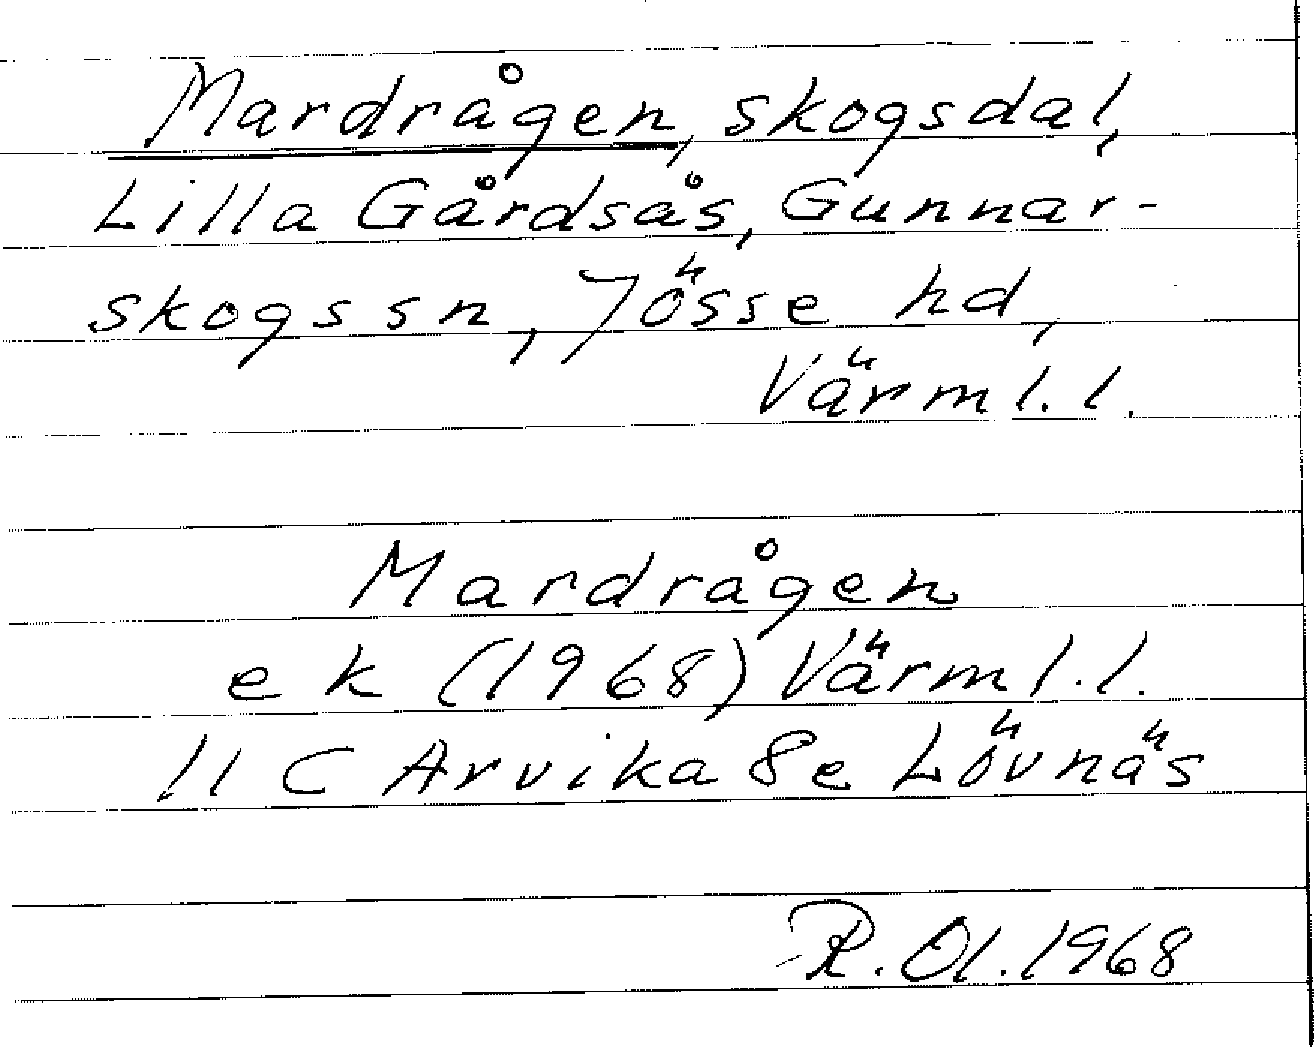 Mardrågen, skogsdal,
Lilla Gårdsås, Gunnar-
skogs sn, Jösse hd,
Värml. l.
Mardrågen
ek (1968) Värml. l.
11 C Arvika 8e Lövnäs
R. Ol. 1968